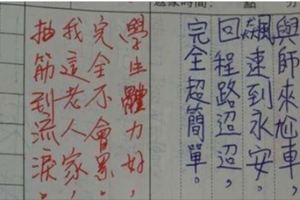 時間：
與師來尬車，
飆速到永安。
回程路迢迢，
完全超簡單。
學生體力好，
完全不會累。
我這老人家，
抽筋到流淚。